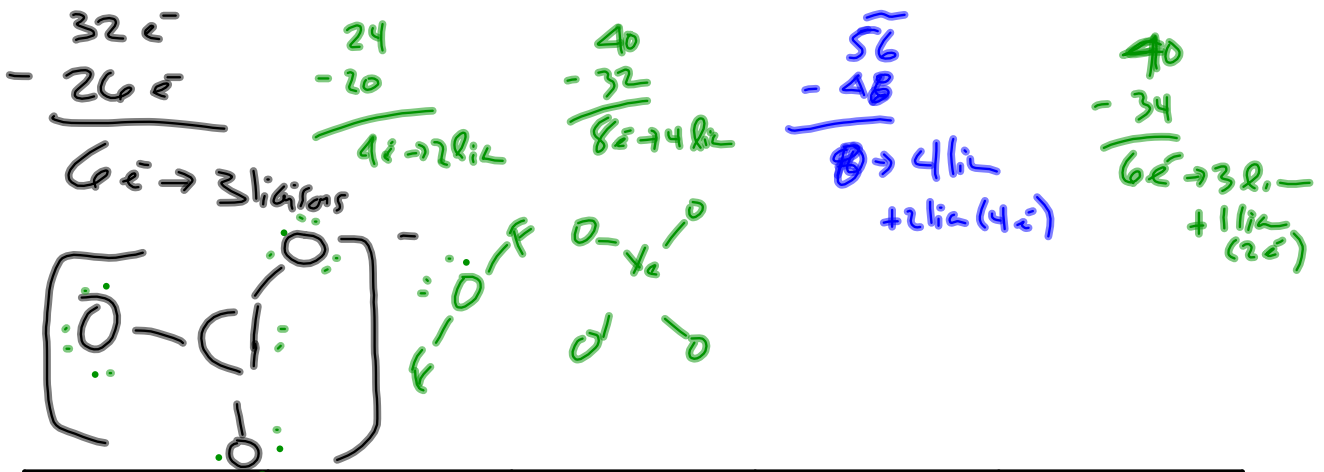 32 e⁻
- 26 e⁻
6 e⁻ → 3 liaisons
24
- 20
4 e⁻ → 2 lia
40
- 32
8 e⁻ → 4 lia
56
- 48
8 → 4 lia
+ 2 lia (4 e⁻)
40
- 34
6 e⁻ → 3 l.
+ 1 lia
(2 e⁻)
O
O Cl
O
-
F
O
F
O O
Xe
O O